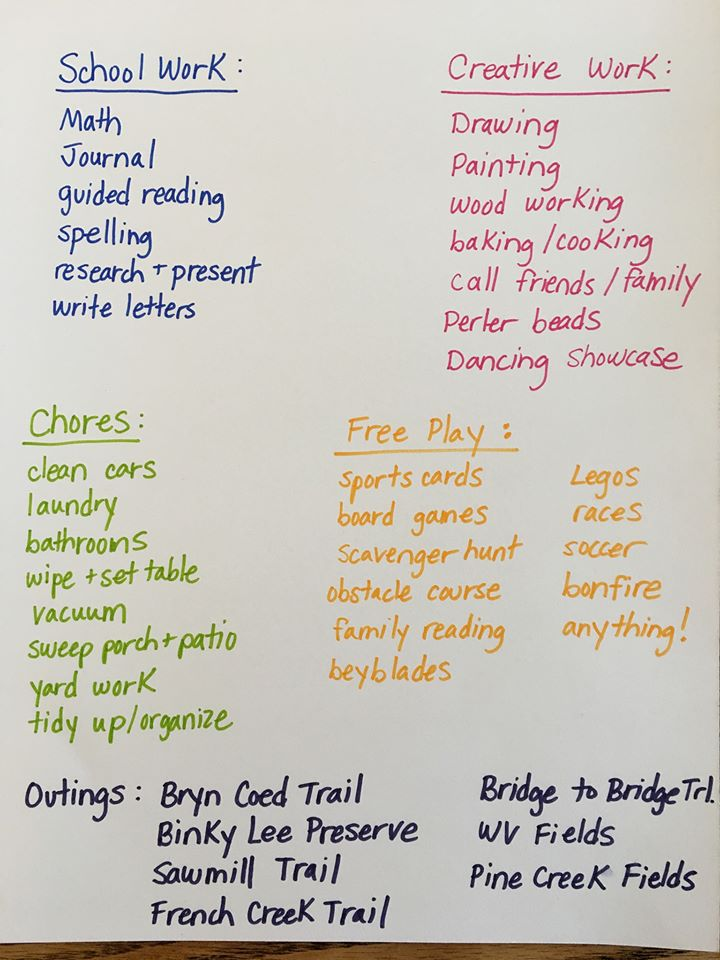 School Work:
Math
Journal
guided reading
spelling
research + present
write letters
Creative Work:
Drawing
Painting
wood working
baking/cooking
call friends/family
Perler beads
Dancing showcase
Chores:
clean cars
laundry
bathrooms
wipe + set table
vacuum
sweep porch + patio
yard work
tidy up/organize
Free Play:
sports cards
board games
scavenger hunt
obstacle course
family reading
beyblades
Legos
races
soccer
bonfire
anything!
Outings: Bryn Coed Trail
Binky Lee Preserve
Sawmill Trail
French Creek Trail
Bridge to Bridge Trl.
WV Fields
Pine Creek Fields